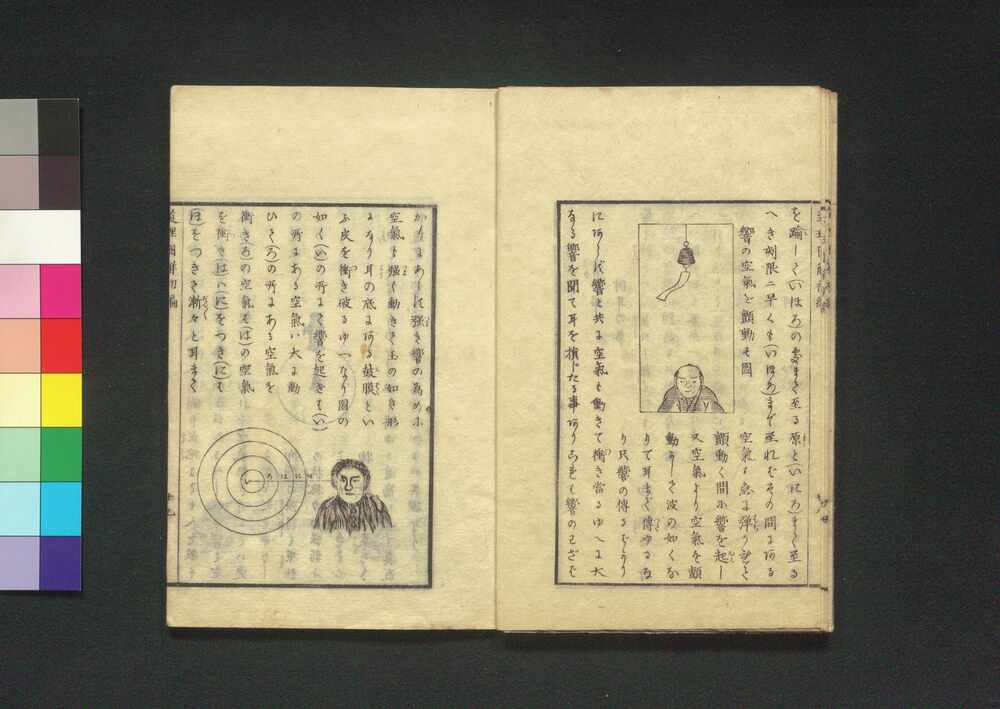 を踰して(いほろ)の處まで至る原と(いにろ)まで至る
へき刻限ニ早くも まで至れバその間にある
響の空氣を顫動せ圖
空氣も急に彈りぞく
顫動く間に響を起し
又空氣より空氣を顫
動かしさ波の如くな
りて耳まで傳ゆるな
り只響の傳るばかり
にあらず響と共に空氣も動きて衝き當るゆへに大
なる響を聞て耳を損じたる事ありされども響の
かりにあらず強き響の為めに
空氣も強く動きて玉の如き形
になり耳の底にある鼓膜とい
ふ皮を衝き破るゆへなり圖の
如く(い)の所にて響を起せば(い)
の所にある空氣ハ大に動
ひて(ろ)の所にある空氣を
衝き(ろ)の空氣ハ(は)の空氣
を衝き(は)ハ(に)をつき(に)も
(ほ)をつきて漸々と耳まで
い ろ は に ほ